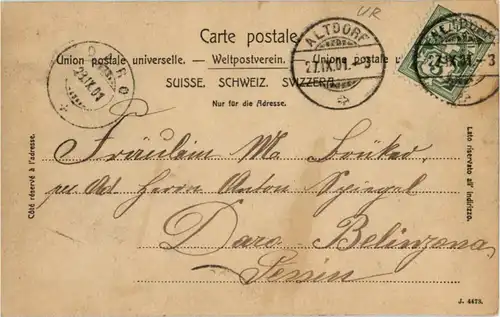 UR
Carte postale.
Union postale universelle. — Weltpostverein. — Unione postale u
SUISSE. SCHWEIZ. SVIZZERA.
Nur für die Adresse.
DARO
28.IX.01
ALTDORF
27.IX.01.-3
ALTDORF
27.IX.01.-3
Côté réservé à l'adresse.
Lato riservato all' indirizzo.
Fräulein
Herrn Anton Spiegel
Daro-Belinzona
Tessin
J. 4479.